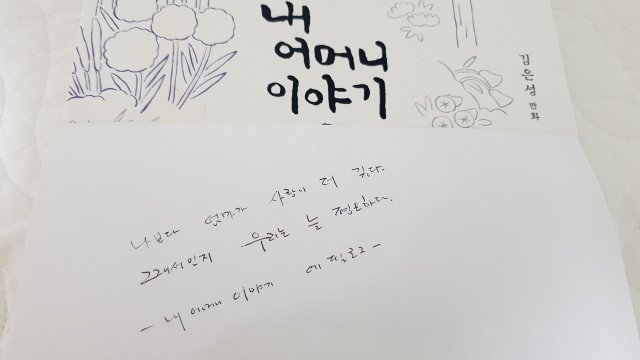 내
어머니
이야기
김은성 만화
나보다 엄마가 사랑이 더 깊다.
그래서인지 우리는 늘 평온하다.
- 내 어머니 이야기 에필로그 -